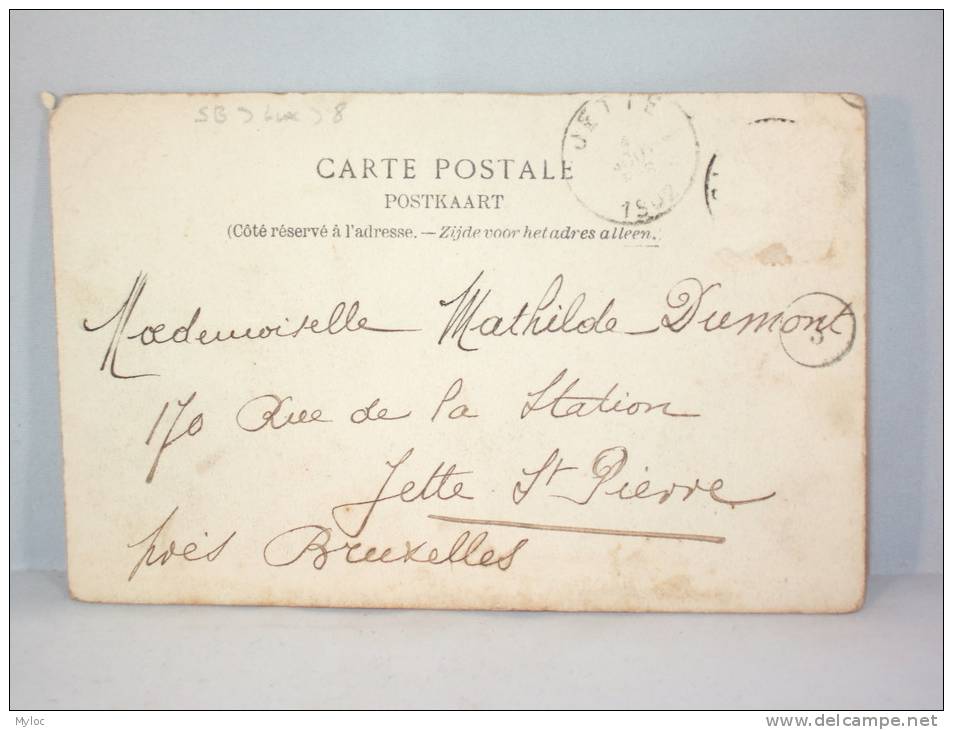 SB > Lux > 8
JETTE
1902
CARTE POSTALE
POSTKAART
(Côté réservé à l'adresse. — Zijde voor het adres alleen.)
Mademoiselle Mathilde Dumont
3
170 Rue de la Station
Jette St Pierre
près Bruxelles
Myloc
delcampe.net